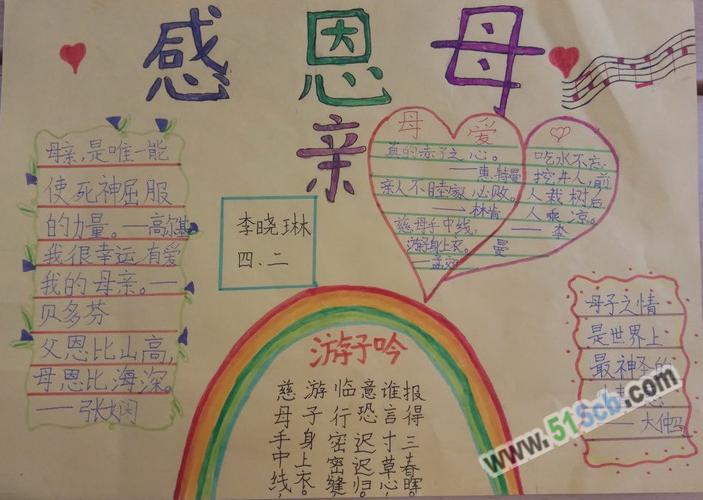 感恩母
亲
母亲,是唯一能
使死神屈服
的力量。——高尔基
我很幸运,有爱
我的母亲。——
贝多芬
父恩比山高,
母恩比海深。
——张
李晓琳
四.二
母爱
真的赤子之心。
——惠特曼
亲人不睦家必败。
——林肯
慈母手中线,
游子身上衣。
——孟
吃水不忘
挖井人,前
人栽树后
人乘凉。
游子吟
慈母手中线,
游子身上衣。
临行密密缝,
意恐迟迟归。
谁言寸草心,
报得三春晖。
母子之情
是世界上
最神圣的
——大仲马
www.51Scb.com